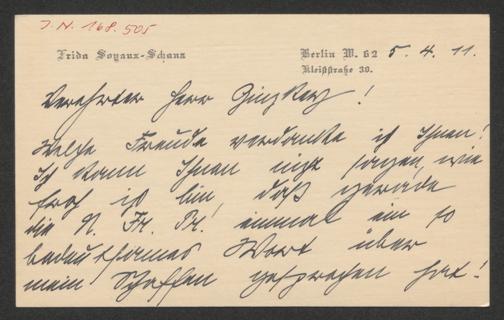 I. N. 168.505
Frida Soyaux-Schanz
Berlin W. 62 5. 4. 11.
Kleiststraße 30.
Verehrter Herr Ginzkey!
Welche Freude verdanke ich Ihnen!
Ich kann Ihnen nicht sagen, wie
froh ich bin, daß gerade
die N. Fr. Pr. einmal ein so
bedeutsames Wort über
mein Schaffen gesprochen hat!